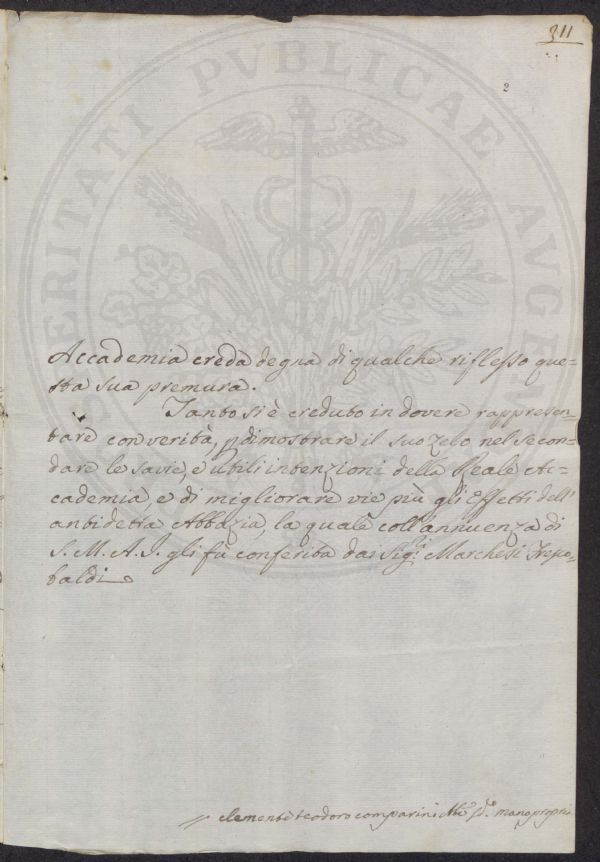 311
2
Accademia creda degna di qualche riflesso que=
sta sua premura.
Tanto si è creduto in dovere rappresen=
tare con verità, p dimostrare il suo zelo nel secon=
dare le savie, e utili intenzioni della Reale Ac=
cademia, e di migliorare vie più gli Effetti dell'
antidetta Abbazia, la quale coll'annuenza di
S. M. A. I. gli fù conferita dai Sigi. Marchesi
baldi
clemente teodoro comparini mano propria
PROSPERITATI PVBLICAE AVGENDAE